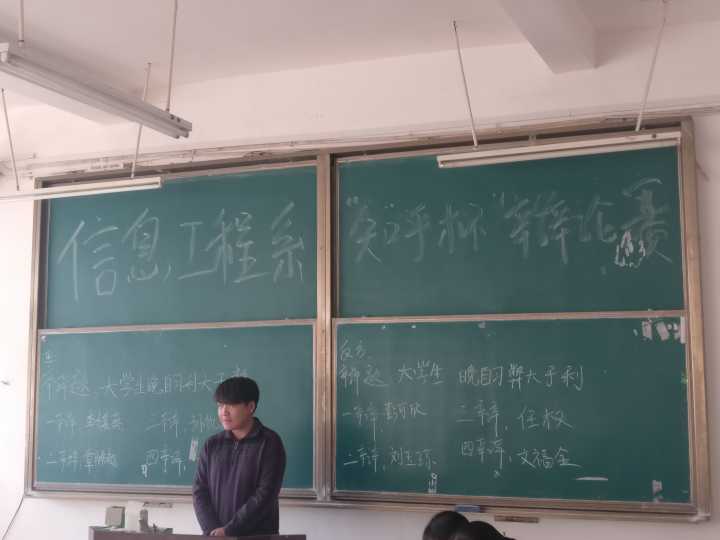 信息工程系
"知乎杯"辩论赛
正
辩题、大学生晚自习利大于
一辩、
二辩、
三辩、
四辩、
反方、
辩题、大学生 晚自习弊大于利
一辩、
二辩、任权
三辩、刘玉琼
四辩、文福全